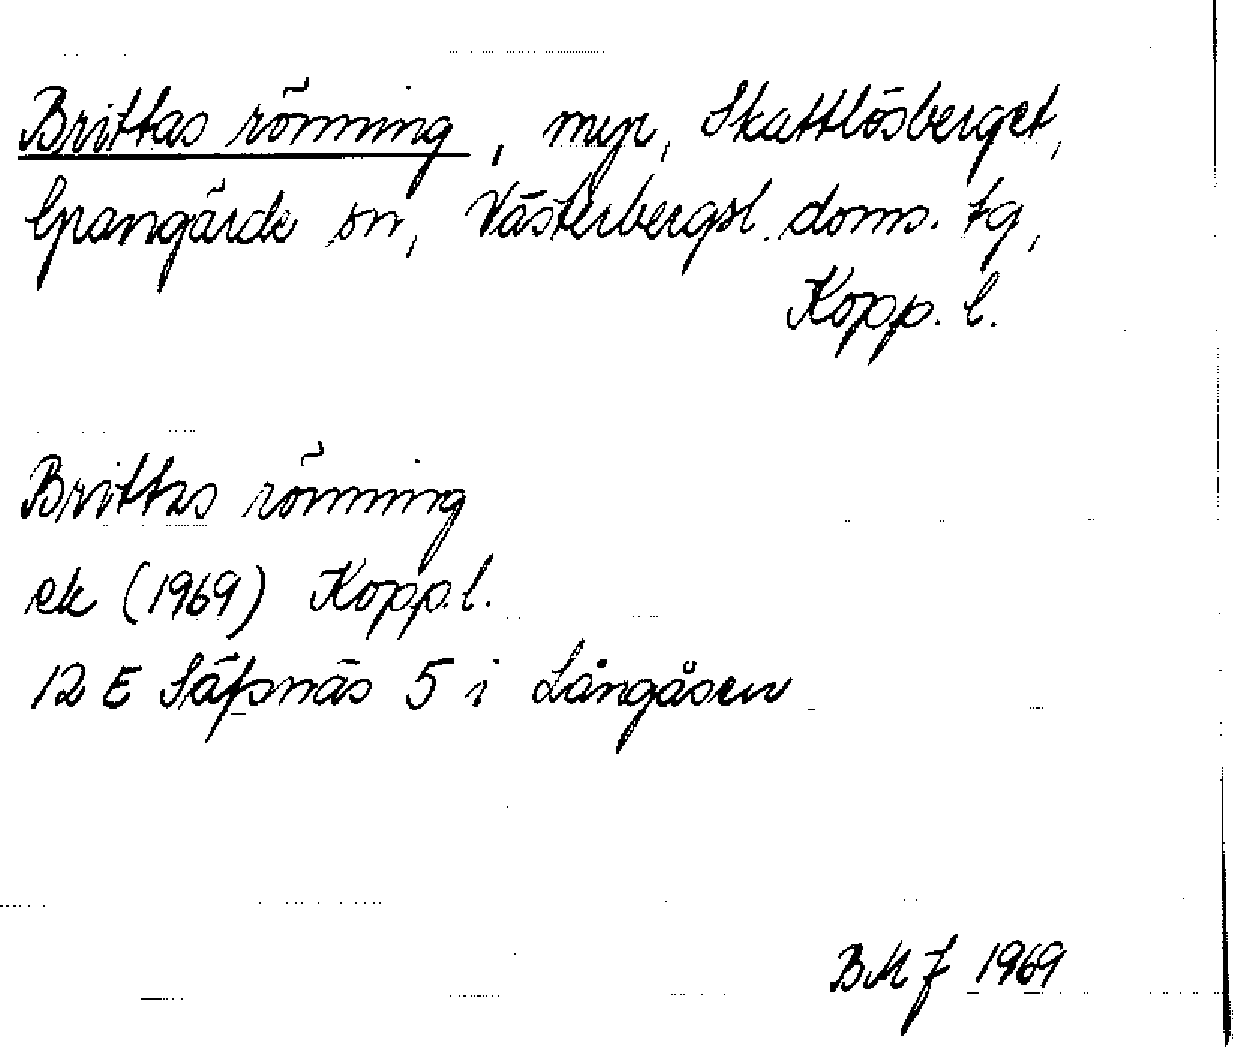 Brittas rönning, myr, Skattlösberget,
Grangärde sn, Västerbergsl. doms. tg,
Kopp. l.
Brittas rönning
ek (1969) Kopp.l.
12 E Säfsnäs 5 i Långåsen
BMJ 1969